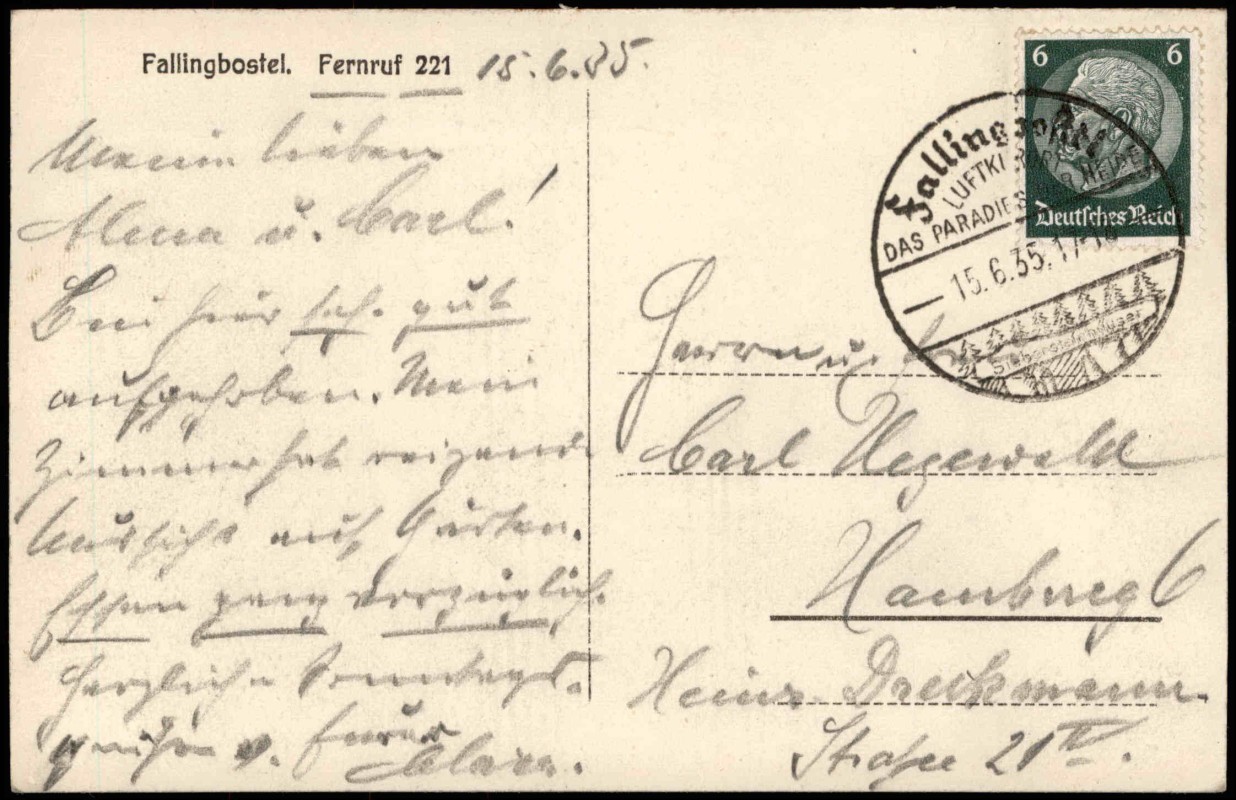 Fallingbostel. Fernruf 221 15.6.35.
Meine lieben
Alma u. Carl!
Bin hier sch. gut
aufgehoben. Mein
Zimmer hat reizende
Aussicht auf Garten.
Essen ganz vorzüglich.
Herzliche Sonntags-
grüße v. Eurer
Clara.
6 6
Deutsches Reich
Fallingbostel
LUFTKURORT
DAS PARADIES DER HEIDE
15.6.35.17-18
Siebensteinhäuser
Herrn u.
Carl Hegewald
Hamburg 6
Heinr Dreckmann
Straße 21 IV.